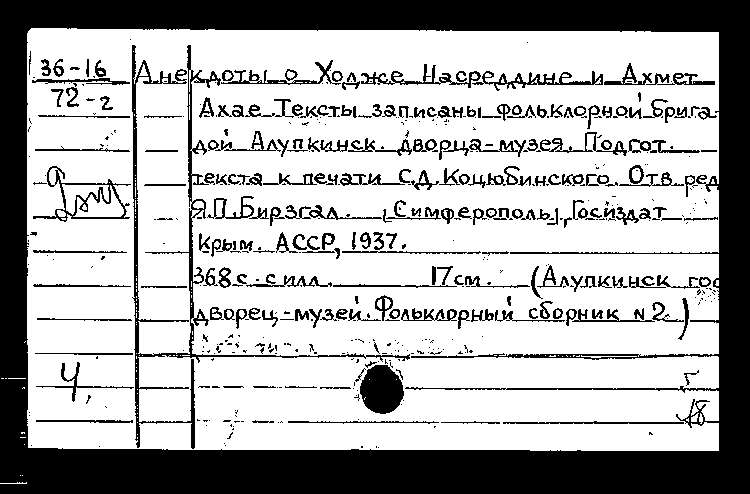 36-16
72-г
Анекдоты о Ходже Насреддине и Ахмет
Ахае. Тексты записаны фольклорной брига-
дой Алупкинск. дворца-музея. Подгот.
текста к печати С.Д. Коцюбинского. Отв. ред
Я.П. Бирзгал. [Симферополь], Госиздат
Крым. АССР, 1937.
368 с. с илл. 17 см. (Алупкинск гос
дворец-музей. Фольклорный сборник №2.)
4,
5